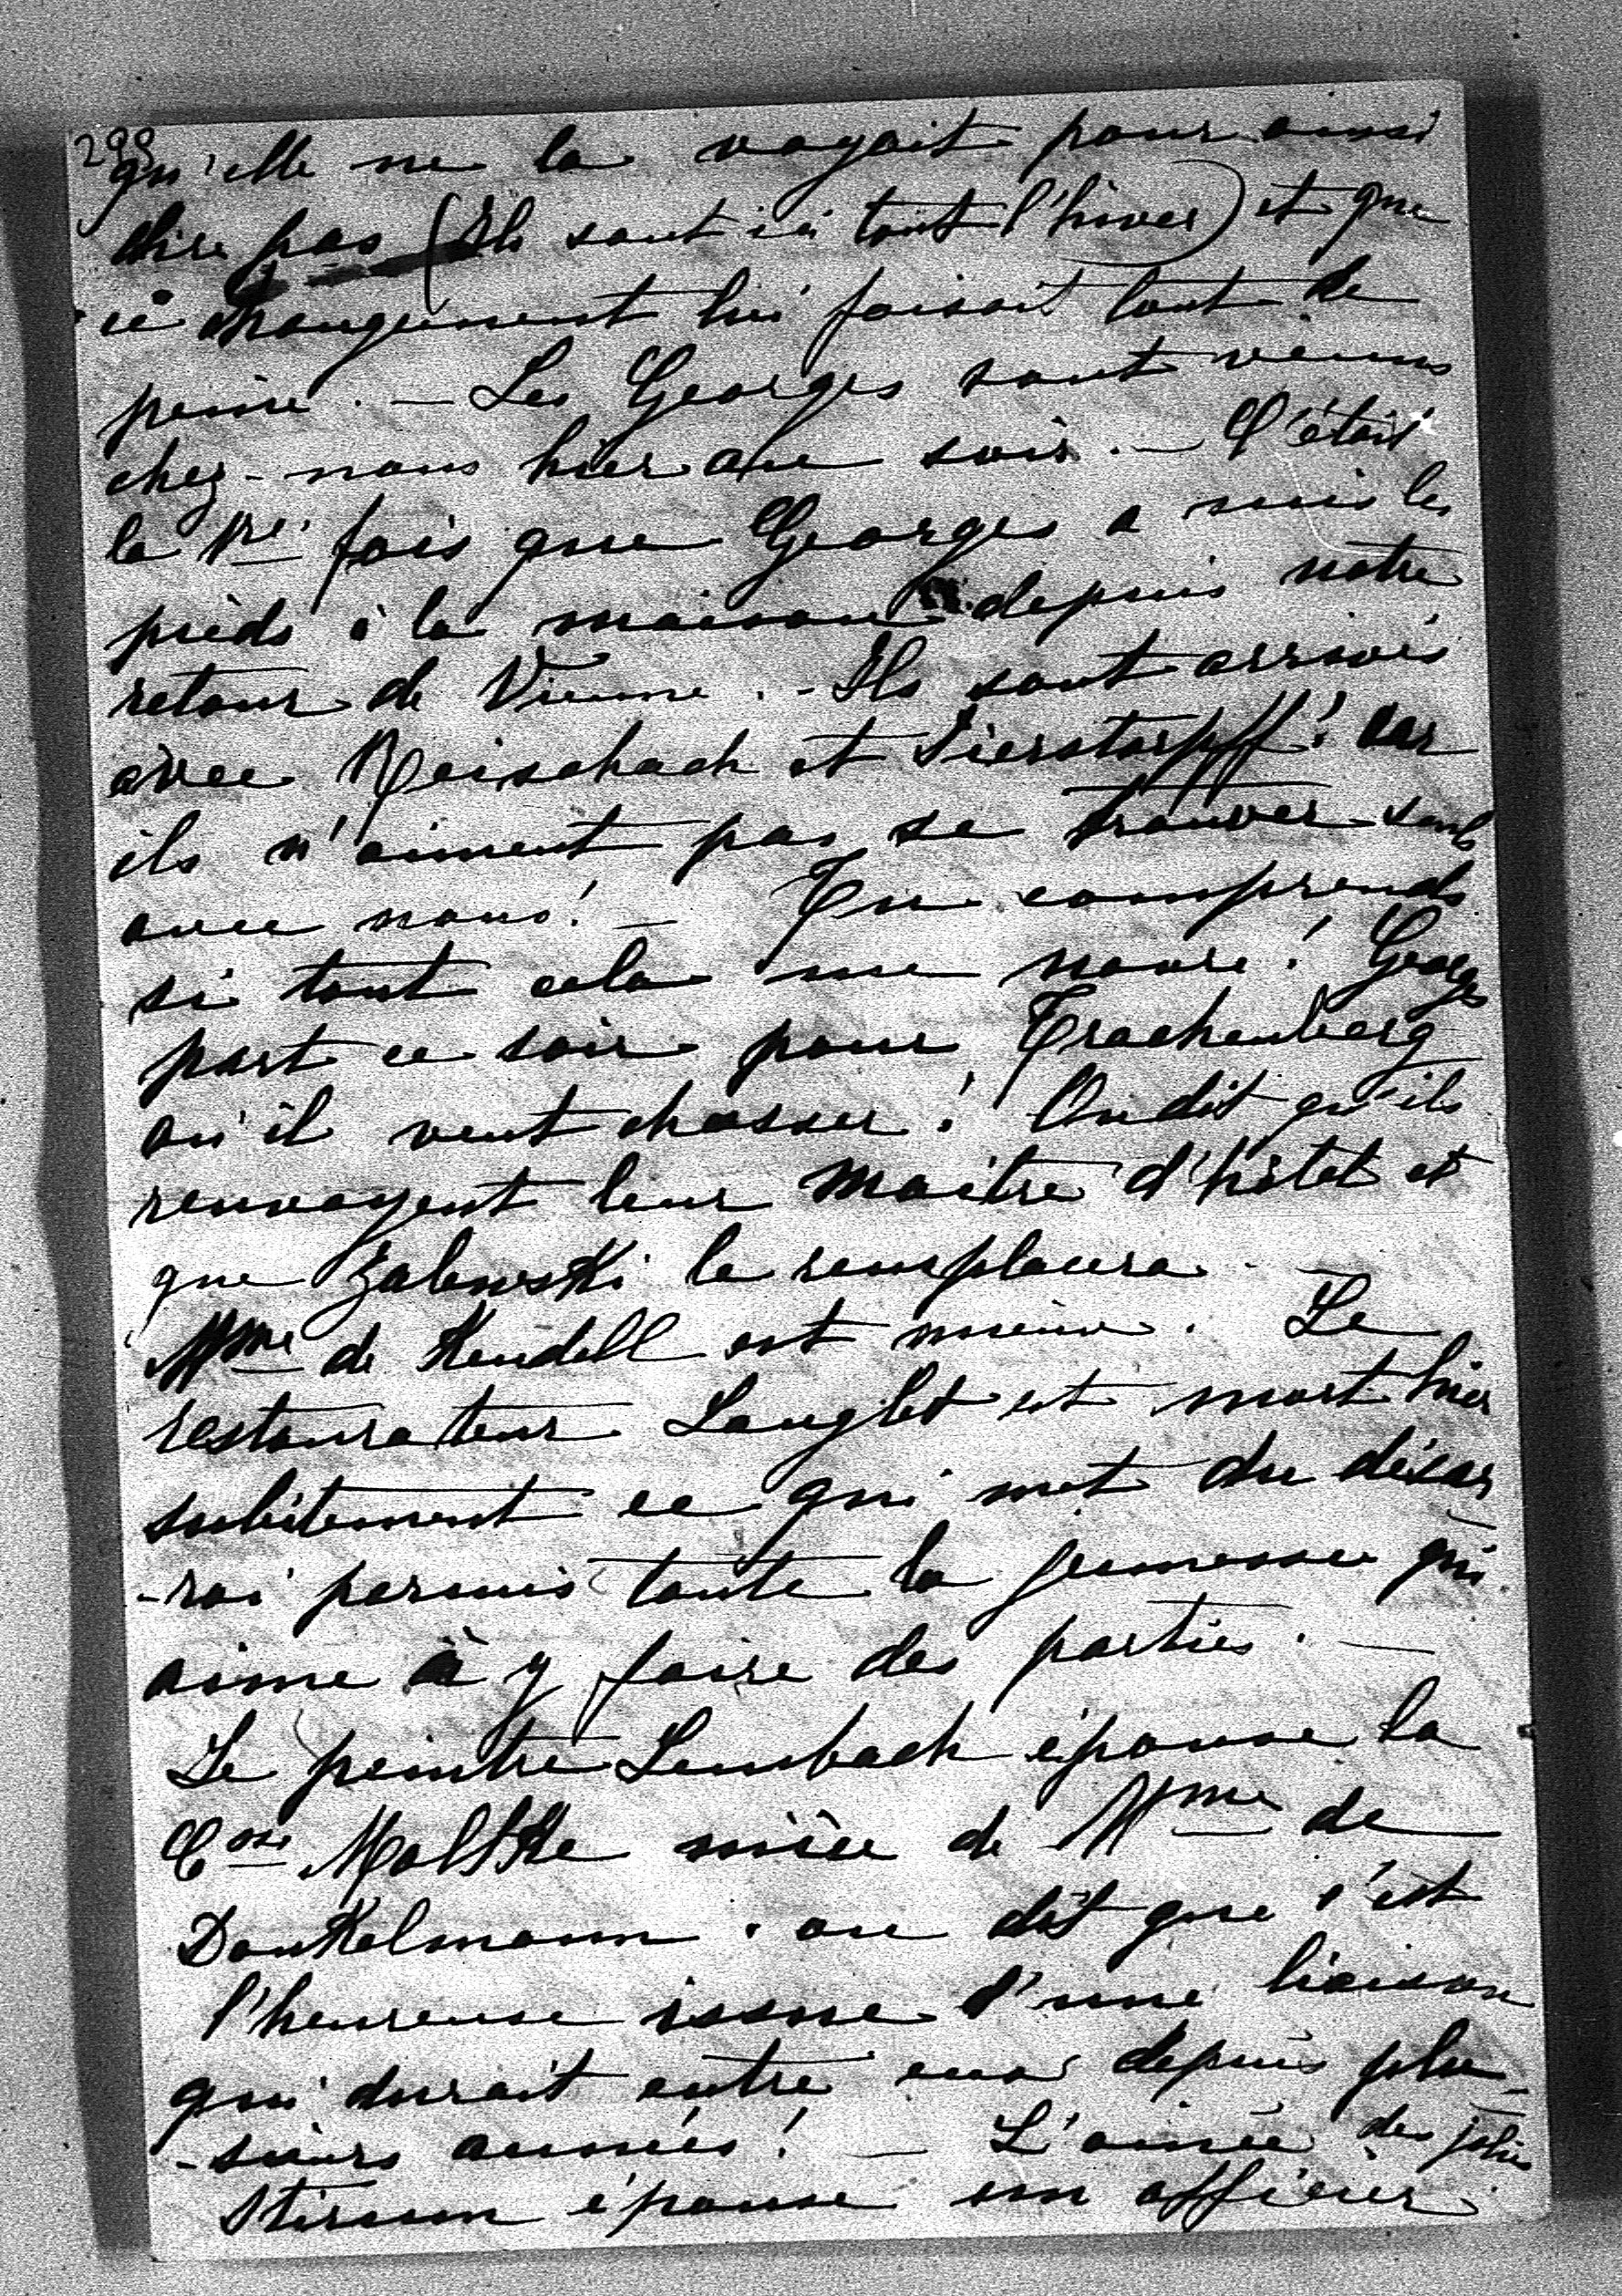 299
qu'elle ne la voyait pour ainsi
dire pas (Ils sont ici tout l'hiver) et que
ce changement lui faisait tant de
peine. — Les Georges sont venus
chez-nous hier au soir. — C'était
la 1re fois que Georges a mis les
pieds à la maison depuis notre
retour de Vienne. - Ils sont arrivés
avec Reischach et Sierstorpff! car
ils n'aiment pas se trouver seuls
avec nous! — Tu comprends
si tout cela me navre! Georges
part ce soir pour Trachenberg
où il veut chasser! On dit qu'ils
renvoyent leur maître d'hôtel et
que Zalewski le remplacera. —
Mme de Keudell est mieux. Le
restaurateur Langlet est mort hier
subitement ce qui met du désar
-roi parmis toute la jeunesse qui
aime à y faire des parties. —
Le peintre Lenbach épouse la
Csse Moltke nièce de Mme de
Dankelmann. on dit que c'est
l'heureuse issue d'une liaison
qui durait entre eux depuis plu-
-sieurs années! — L'ainée des jolies
Stirum épouse un officier